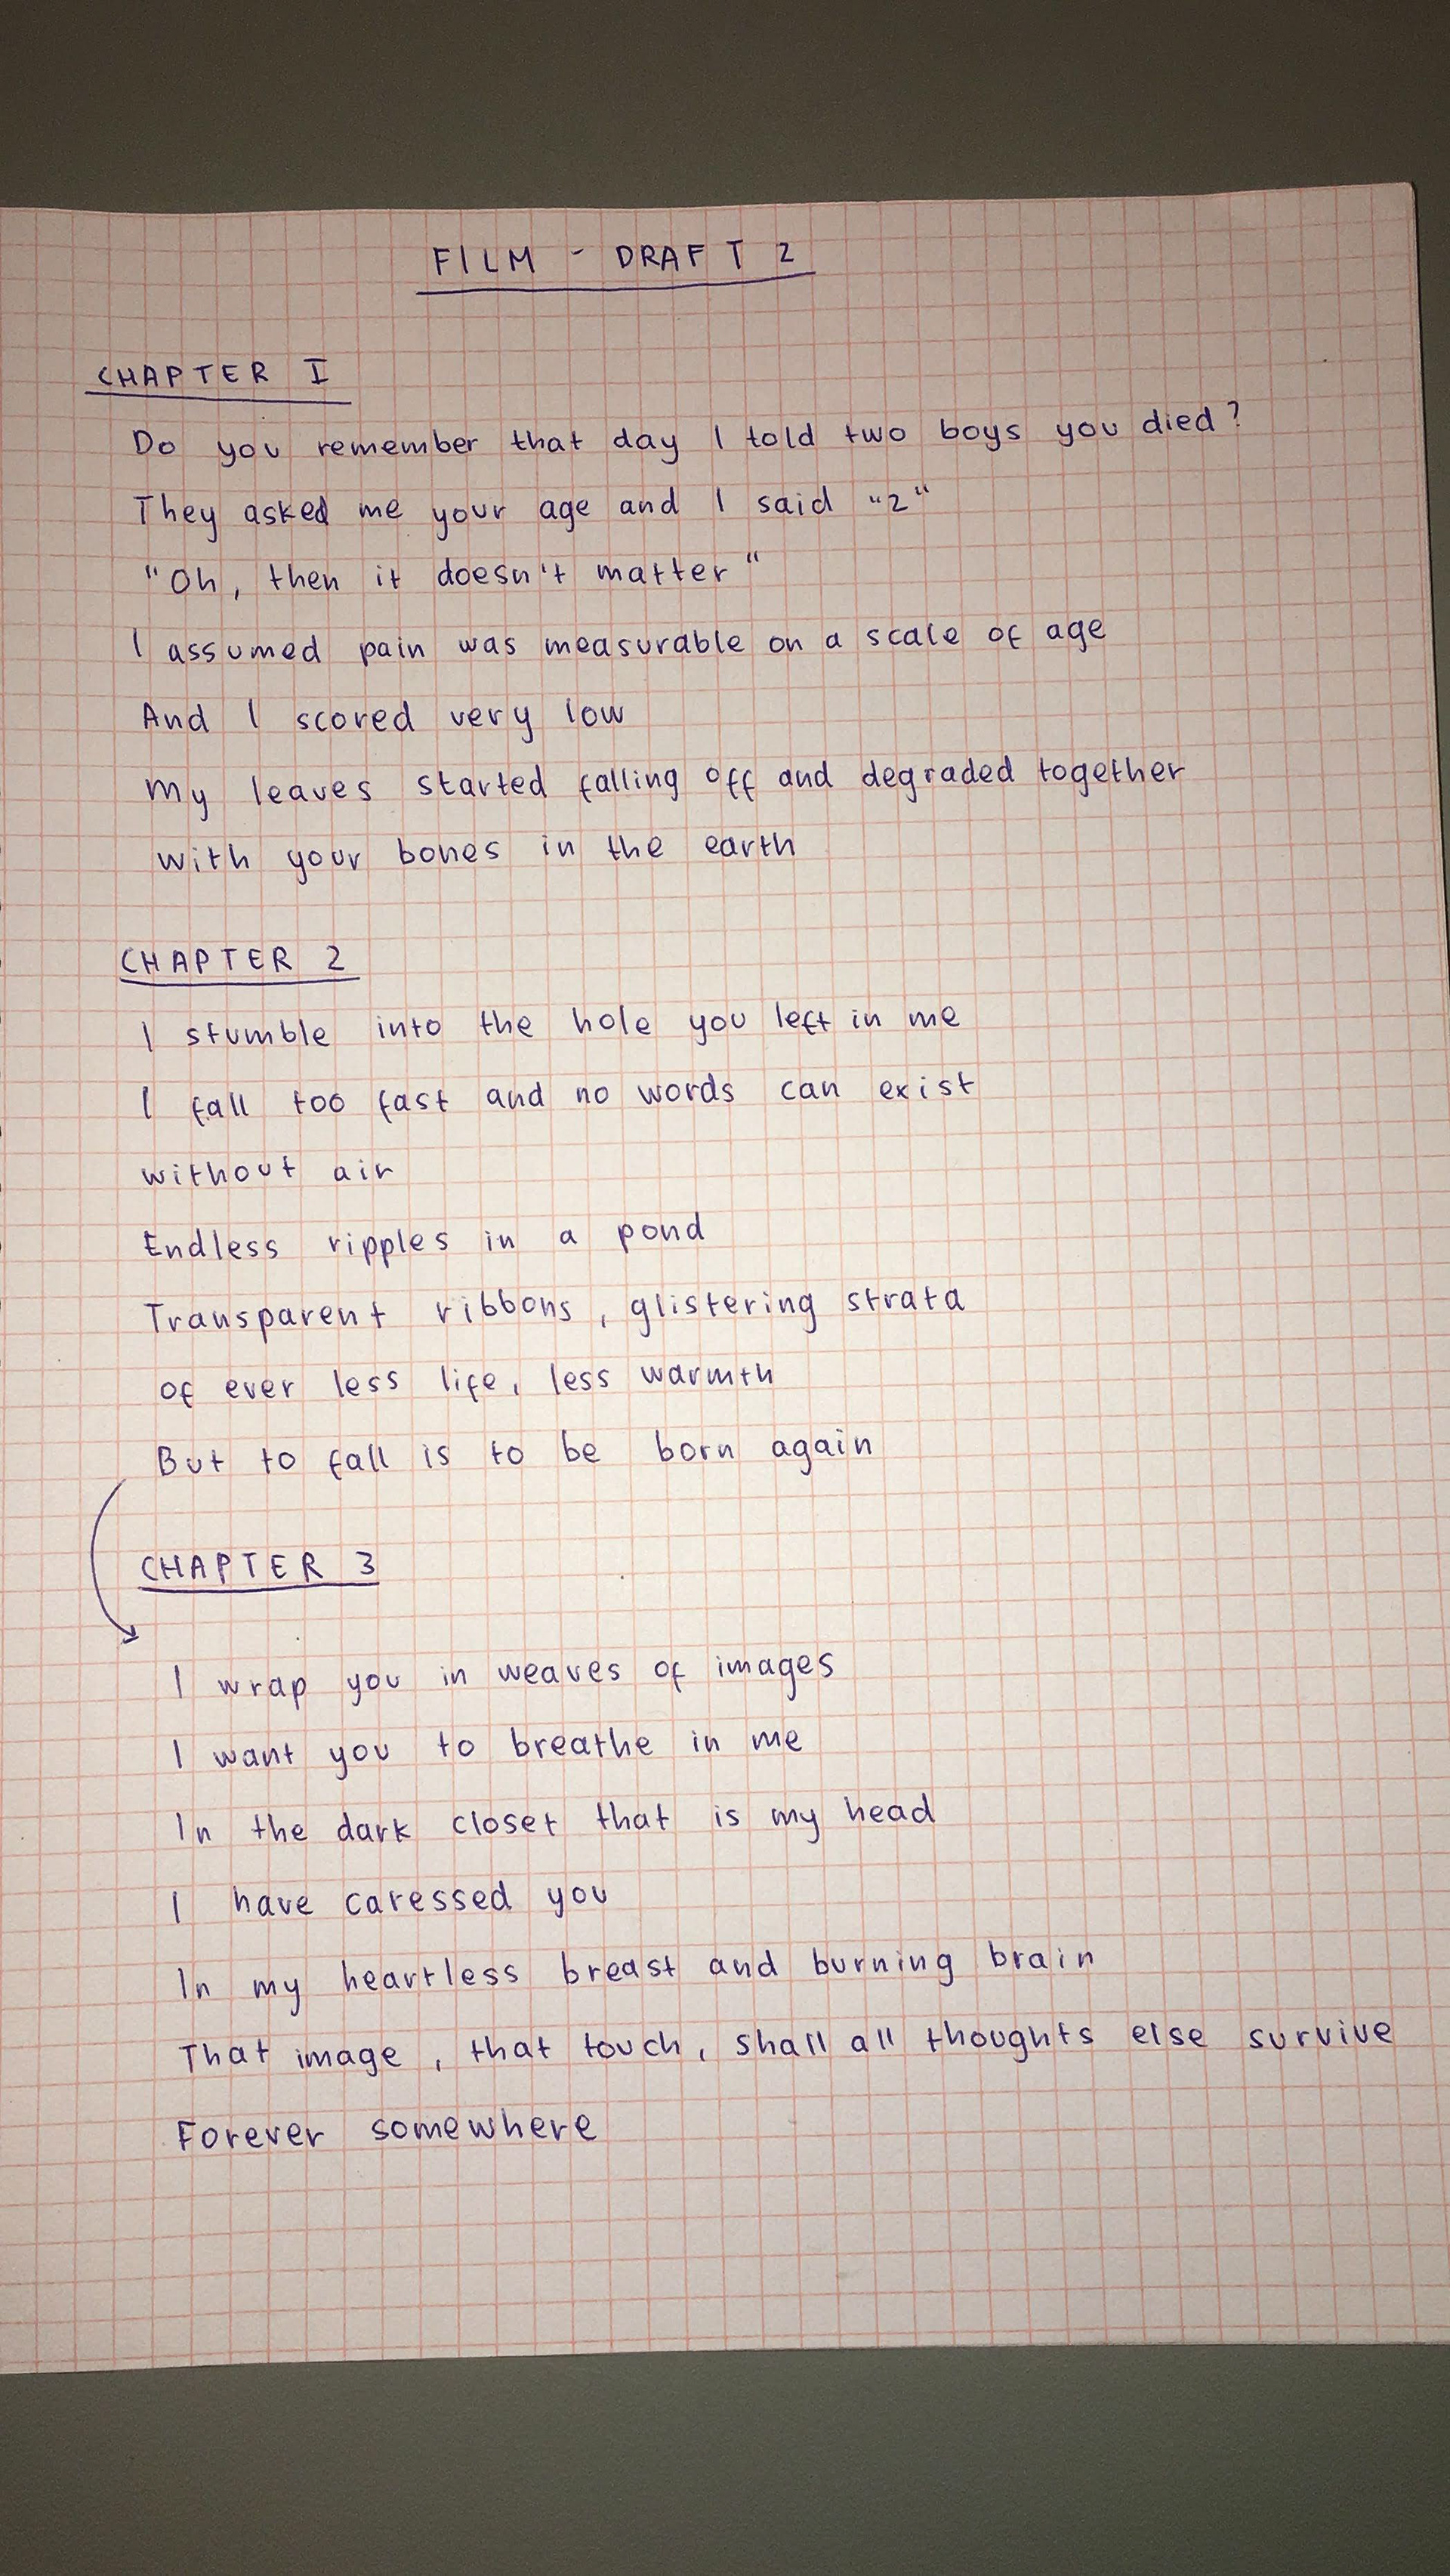 FILM - DRAFT 2
CHAPTER I
Do you remember that day I told two boys you died?
They asked me your age and I said "2"
"Oh, then it doesn't matter"
I assumed pain was measurable on a scale of age
And I scored very low
My leaves started falling off and degraded together
with your bones in the earth
CHAPTER 2
I stumble into the hole you left in me
I fall too fast and no words can exist
without air
Endless ripples in a pond
Transparent ribbons, glistering strata
of ever less life, less warmth
But to fall is to be born again
CHAPTER 3
I wrap you in weaves of images
I want you to breathe in me
In the dark closet that is my head
I have caressed you
In my heartless breast and burning brain
That image, that touch, shall all thoughts else survive
Forever somewhere